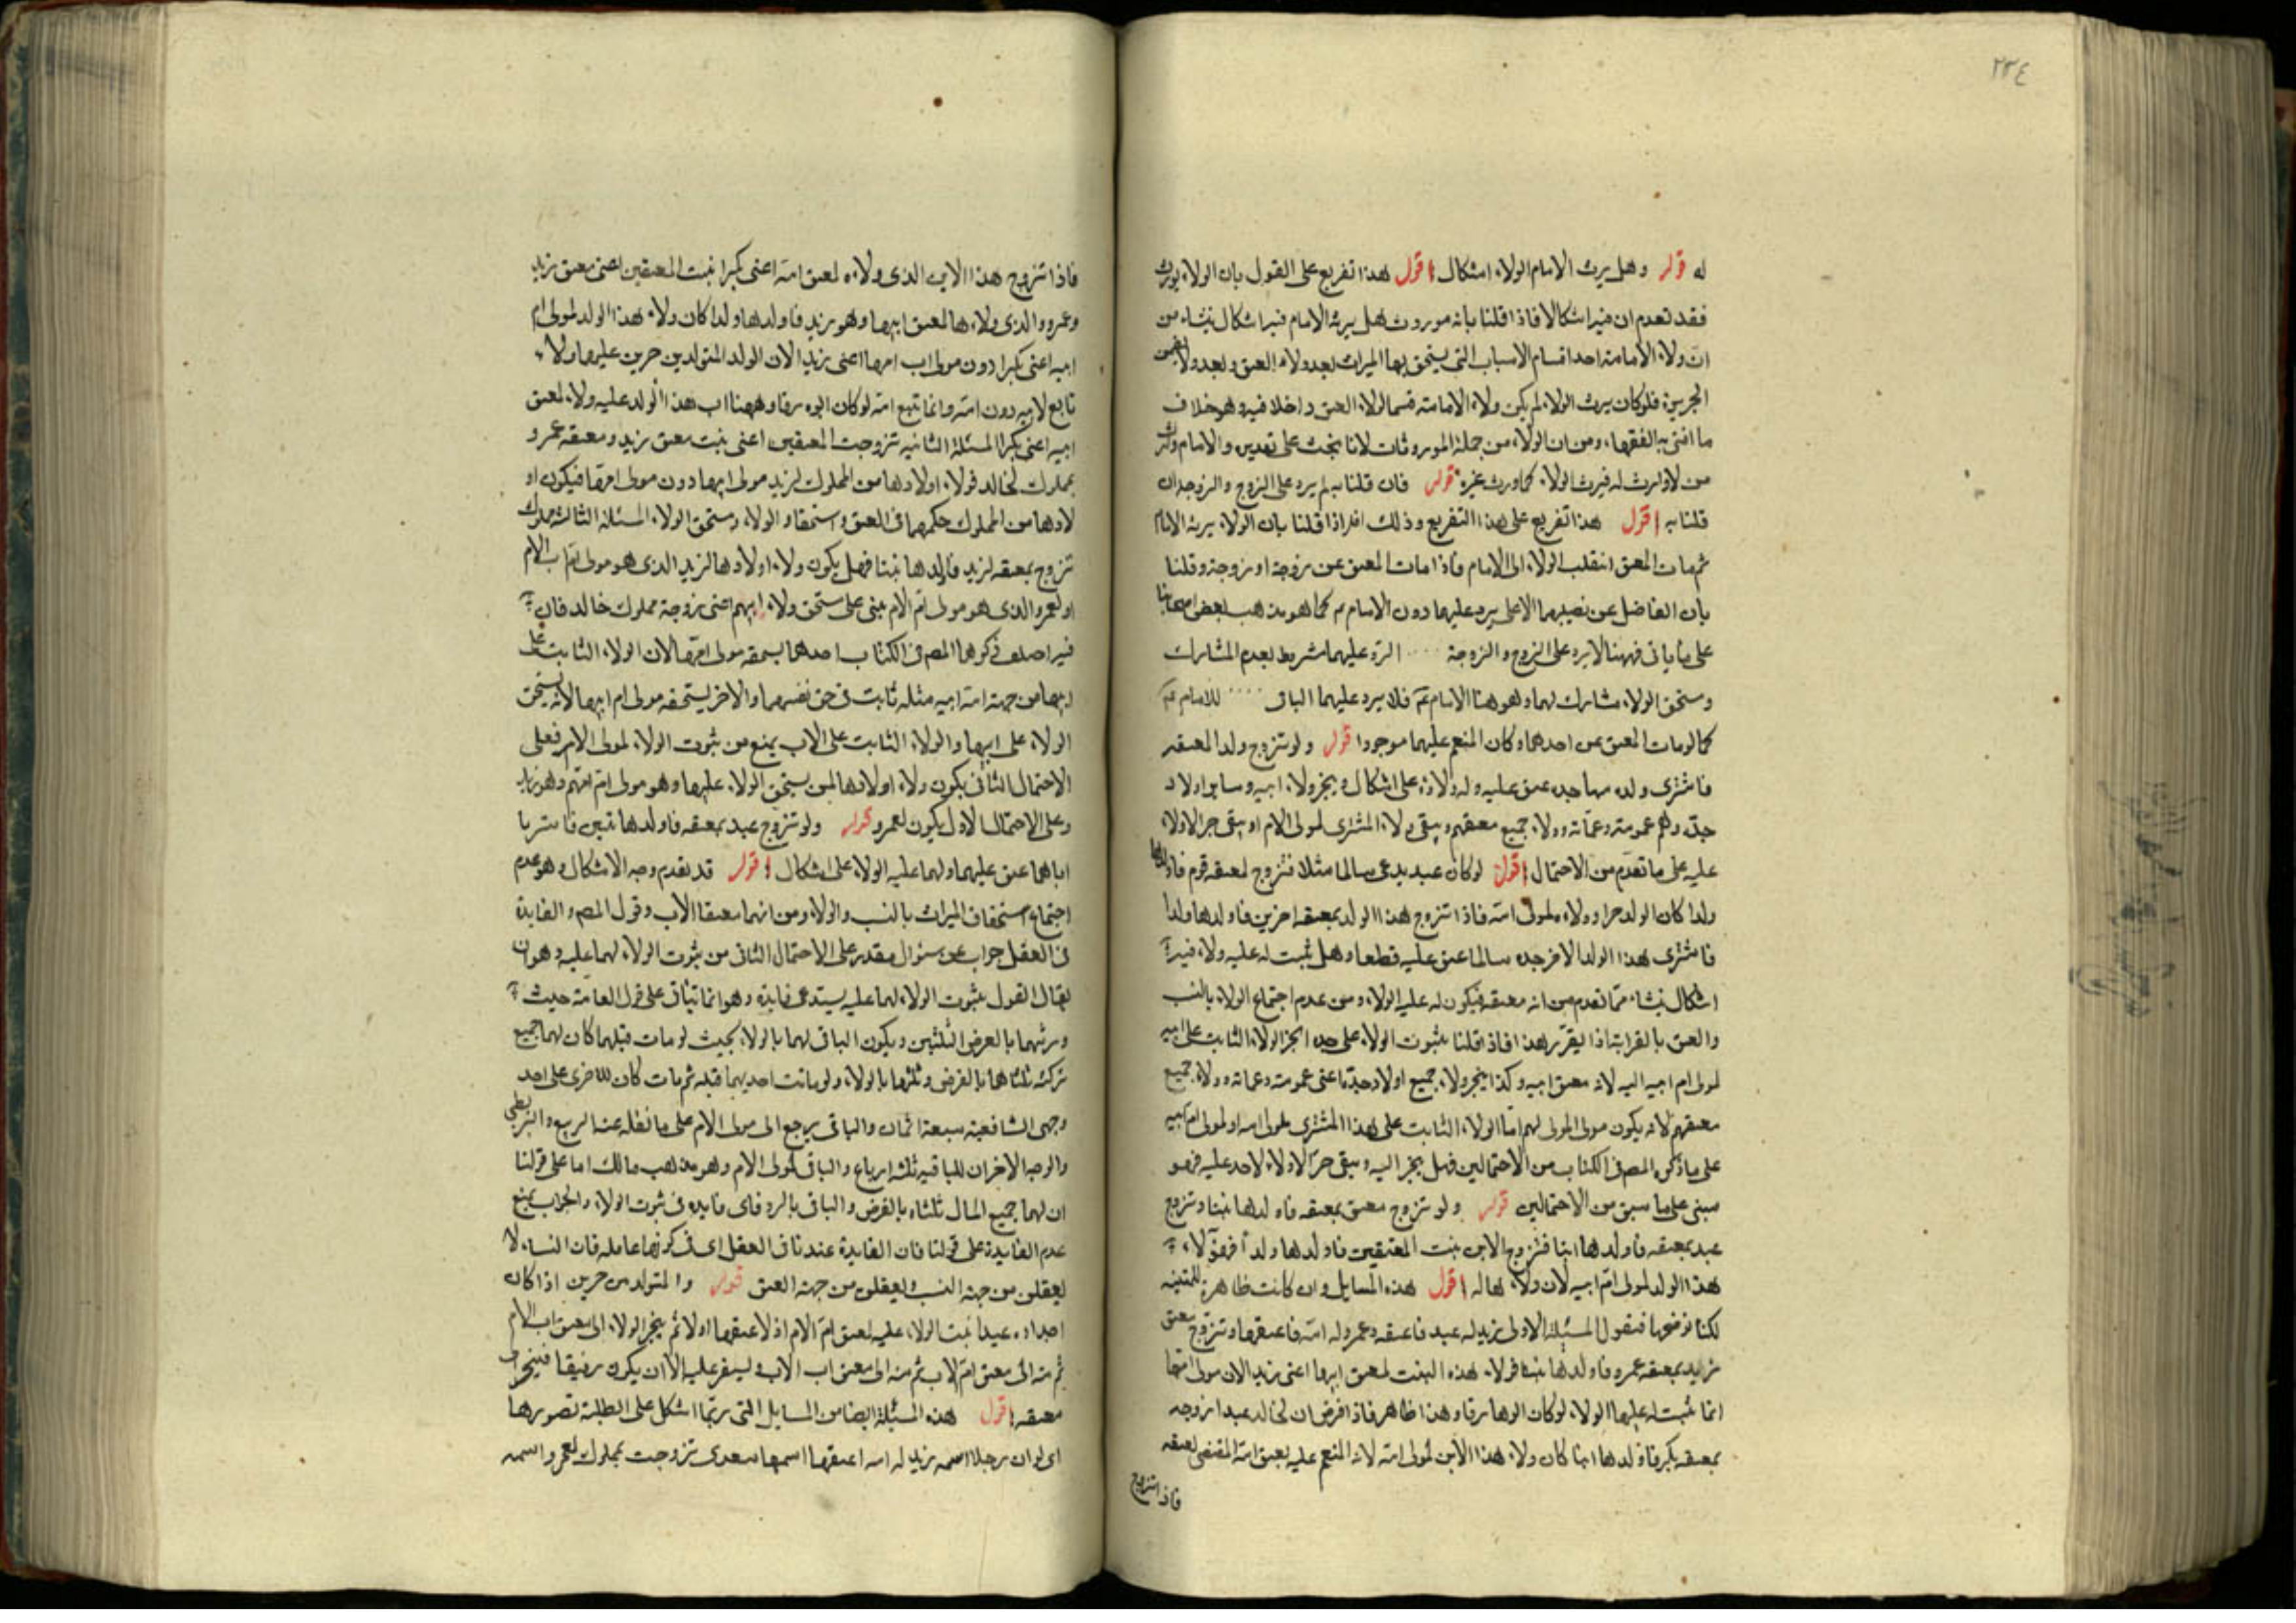 ٢٣٤
له قوله وهل يرث الامام الولاء اشكال اقول هذا تفريع على القول بان الولاء يورث
فقد تقدم ان فيه اشكالا فاذا قلنا بانه موروث هل يرثه الامام فيه اشكال ينشاء من
ان ولاء الامامة احد اقسام الاسباب التى يستحق بها الميراث بعد ولاء العتق وبعد ولاء تضمن
الجريرة فلو كان يرث الولاء لم يكن ولاء الامامة قسما لولاء العتق داخلا فيه وهو خلاف
ما افتى به الفقهاء ومن ان الولاء من جملة الموروثات لانا نبحث على تقديره والامام وارث
من لا وارث له فيرث الولاء كما ورث غيره قوله فان قلنا به لم يرد على الزوج والزوجة ان
قلنا به اقول هذا تفريع على هذا التفريع وذلك انه اذا قلنا بان الولاء يرثه الامام
ثم مات المعتق انتقلب الولاء الى الامام فاذا مات المعتق عن زوجة او زوجة وقلنا
بان الفاضل عن نصيبهما الاعلى يرد عليهما دون الامام كما هو مذهب بعض اصحابنا
على ما ياتى فههنا لا يرد على الزوج والزوجة الرد عليهما مشروط بعدم المشارك
ومستحق الولاء مشارك لهما وهو هنا الامام فلا يرد عليهما الباقى للامام
كما لو مات المعتق عن احدهما وكان المنعم عليهما موجودا قوله ولو تزوج ولد المعتقه
فاشترى ولده منها جده عتق عليه وله ولاؤه على اشكال وينجر ولاء ابيه وساير اولاد
جده وهم عمومته وعماته وولاء جميع معتقيهم ويبقى ولاء المشترى لمولى الام او يبقى حر الاولاء
عليه على ما تقدم من الاحتمال اقول لو كان عبد يدعى سالما مثلا فتزوج لمعتقه قوم فاولدها
ولدا كان الولد حرا وولاءه لمولى امه فاذا تزوج هذا الولد بمعتقه اخرين فاولدها ولدا
فاشترى هذا الولد الاخر جده سالما عتق عليه قطعا وهل يثبت له عليه ولاء فيه
اشكال ينشاء مما تقدم من انه معتقه فيكون له عليه الولاء ومن عدم اجتماع الولاء بالنسب
والعتق بالقرابة اذا يقرر هذا فاذا قلنا بثبوت الولاء على جده انجر الولاء الثابت على ابيه
لمولى ام ابيه اليه لانه معتق ابيه وكذا ينجر ولاء جميع اولاد جده اعنى عمومته وعماته وولاء جميع
معتقيهم لانه يكون مولى المولى لهم اما الولاء الثابت على هذا المشترى لمولى امه او لمولى ام ابيه
على ما ذكره المصر فى الكتاب من الاحتمالين فهل ينجر اليه ويبقى حرا لا ولاء لاحد عليه فهو
مبنى على ما سبق من الاحتمالين قوله ولو تزوج معتق بمعتقه فاولدها بنتا وتزوج
عبد بمعتقه فاولدها ابنا فتزوج الابن بنت المعتقين فاولدها ولدا فهو لاء
هذا الولد لمولى ام ابيه لان ولاء هاله اقول هذه المسايل وان كانت ظاهرة
لكنا نوضحها فنقول المسئلة الاولى زيد له عبد فاعتقه وعمرو له امة فاعتقها وتزوج معتق
زيد بمعتقه عمرو فاولدها بنتا فولاء هذه البنت لمعتق ابيها اعنى زيد الان مولى امها
انما يثبت له عليها الولاء لو كان ابوها رقا وهذا ظاهر فاذا فرض ان لخالد عبدا زوجه
بمعتقه بكر فاولدها ابنا كان ولاء هذا الابن لمولى امه لانه المنعم عليه بعتق امه المقتضى لعتقه
فاذا تزوج
فاذا تزوج هذا الابن الذى ولاءه لمعتق امه اعنى بكرا بنت المعتقين اعنى معتق زيد
وعمرو والذى ولاءها لمعتق ابيها وهو زيد فاولدها ولدا كان ولاء هذا الولد لمولى ام
ابيه اعنى بكرا دون مولى اب امها اعنى زيد الان الولد المتولد من حرين عليهما ولاء
تابع لابيه دون امه وانما تتبع امه لو كان ابوه رقا وههنا اب هذا الولد عليه ولاء لمعتق
ابيه اعنى بكرا المسئلة الثانيه تزوجت المعتقين اعنى بنت معتق زيد ومعتقه عمرو
بمملوك لخالد فولاء اولادها من المملوك لزيد مولى ابيها دون مولى امها فيكون او
لادها من المملوك حكمهما فى العتق واستحقاق الولاء ومستحق الولاء المسئلة الثالثة مملوك
تزوج بمعتقه لزيد فاولدها بنتا فهل يكون ولاء اولادها لزيد الذى هو مولى ام اب الام
او لعمرو الذى هو مولى ام الام مبنى على مستحق ولاء ابيهم اعنى زوجة مملوك خالد فان
فيه احتمالين ذكرهما المصر فى الكتاب احدهما يستحقه مولى امها لان الولاء الثابت على
ابيها من جهة امه ابيه مثله ثابت فى حق نفسها والاخر يستحقه مولى ام ابيها لانه يستحق
الولاء على ابيها والولاء الثابت على الاب يمنع من ثبوت الولاء لمولى الام فعلى
الاحتمال الثانى يكون ولاء اولادها لمن يستحق الولاء عليها وهو مولى ام امهم وهو زيد
وعلى الاحتمال الاول يكون لعمرو قوله ولو تزوج عبد بمعتقه فاولدها بنتين فاشتريا
اباهما عتق عليهما ولهما عليه الولاء على اشكال اقول قد تقدم وجه الاشكال وهو عدم
اجتماع استحقاق الميراث بالنسب والولاء ومن انهما معتقا الاب وقول المصر والفايدة
فى العقل جواب عن سئوال مقدر على الاحتمال الثانى من ثبوت الولاء لهما عليه وهو ان
يقال القول بثبوت الولاء لهما عليه يستدعى فايدة وهو انما يتاتى على قول العامة حيث
ورثهما بالفرض الثلثين ويكون الباقى لهما بالولاء بحيث لو مات قبلهما كان لهما جميع
تركته ثلثاها بالفرض وثلثها بالولاء ولو ماتت احديهما قبله ثم مات كان للاخرى على احد
وجهى الشافعية سبعة اثمان والباقى يرجع الى مولى الام على ما نقله عنه الربيع والبويطى
والوجه الاخر ان للباقيه ثلثه ارباع والباقى لمولى الام وهو مذهب مالك اما على قولنا
ان لهما جميع المال ثلثاه بالفرض والباقى بالرد فاى فايده فى ثبوت الولاء والجواب بمنع
عدم الفايدة على قولنا فان الفايدة عندنا فى العقل اى فى كونهما عاقلة فان النساء لا
يعقلون من جهة النسب ويعقلون من جهة العتق قوله والمتولد من حرين اذا كان
اجداده عبيدا ثبت الولاء عليه لمعتق ام الام اذ لا عتقها اولا ثم ينجر الولاء الى معتق اب الام
ثم منه الى معتق ام الاب ثم منه الى معتق اب الاب ويستقر عليه الا ان يكون رقيقا فينجر الى
معتقه اقول هذه المسئلة ايضا من المسايل التى ربما اشكل على الطلبة تصورها
اى لو ان رجلا اسمه زيد له امه اعتقها اسمها سعدى تزوجت بمملوك لعمرو اسمه